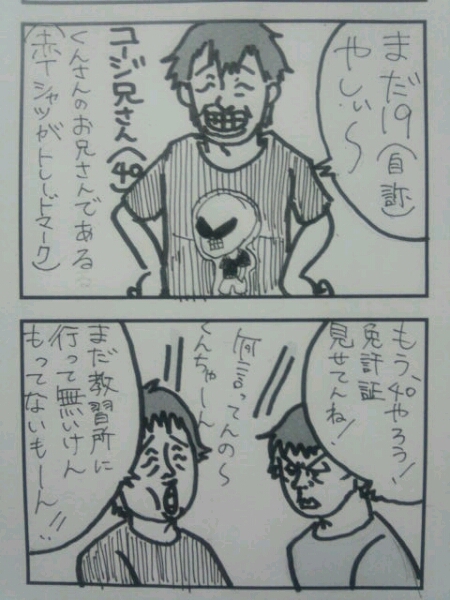 まだ19(自称)
やしぃ〜
コージ兄さん(40)
くんさんのお兄さんである
(赤Tシャツがトレードマーク)
もう、40やろう!
免許証
見せてんね!
何言ってんの〜
くんちゃーん
まだ教習所に
行って無いけん
もってないもーん!!